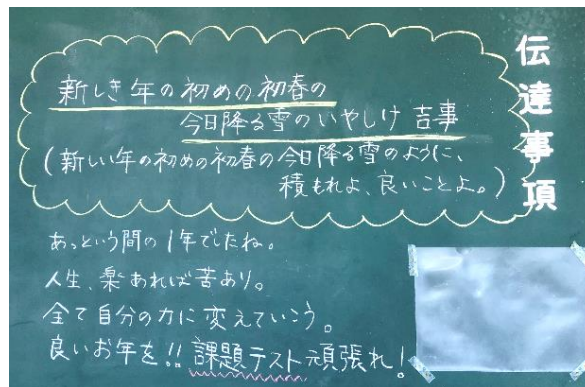 伝達事項
新しき年の初めの初春の
今日降る雪のいやしけ吉事
(新しい年の初めの初春の今日降る雪のように、
積もれよ、良いことよ。)
あっという間の1年でしたね。
人生、楽あれば苦あり。
全て自分の力に変えていこう。
良いお年を!!課題テスト頑張れ!